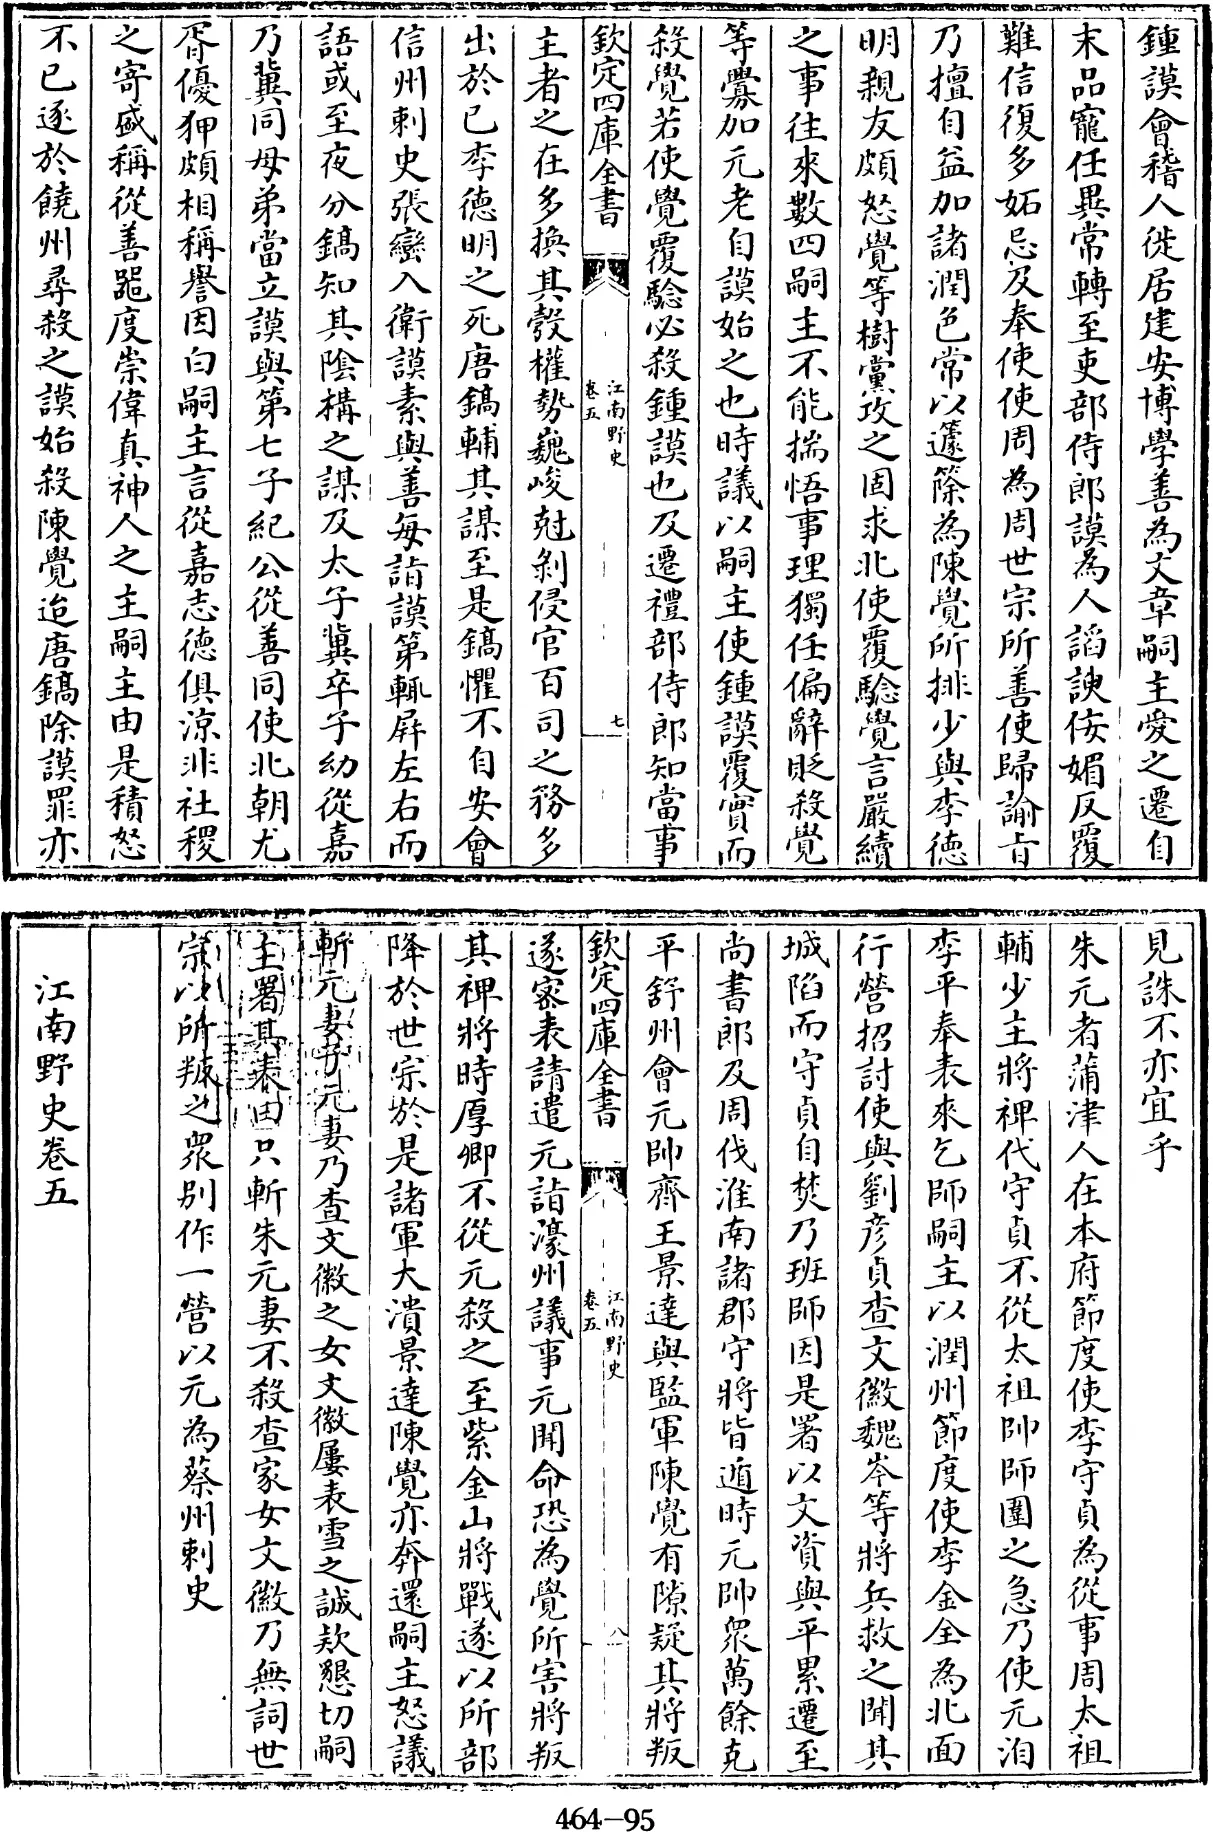 鍾謨會稽人徙居建安博學善為文章嗣主愛之遷自
末品寵任異常轉至吏部侍郎謨為人謟諛佞媚反覆
難信復多妬忌及奉使使周為周世宗所善使歸諭旨
乃擅自益加諸潤色常以籧篨為陳覺所排少與李德
明親友頗怒覺等樹黨攻之固求北使覆驗覺言嚴續
之事往來數四嗣主不能揣悟事理獨任偏辭貶殺覺
等釁加元老自謨始之也時議以嗣主使鍾謨覆實而
殺覺若使覺覆驗必殺鍾謨也及遷禮部侍郎知當事
欽定四庫全書
江南野史
卷五
七
主者之在多換其彀權勢巍峻尅剝侵官百司之務多
出於已李德明之死唐鎬輔其謀至是鎬懼不自安會
信州刺史張巒入衛謨素與善每詣謨第輒屛左右而
語或至夜分鎬知其陰構之謀及太子冀卒子幼從嘉
乃冀同母弟當立謨與第七子紀公從善同使北朝尤
胥優狎頗相稱譽因白嗣主言從嘉志德俱涼非社稷
之寄盛稱從善噐度崇偉真神人之主嗣主由是積怒
不已逐於饒州尋殺之謨始殺陳覺迨唐鎬除謨罪亦
見誅不亦宜乎
朱元者蒲津人在本府節度使李守貞為從事周太祖
輔少主將禆代守貞不從太祖帥師圍之急乃使元洎
李平奉表來乞師嗣主以潤州節度使李金全為北面
行營招討使與劉彦貞查文徽魏岑等將兵救之聞其
城陷而守貞自焚乃班師因是署以文資與平累遷至
尚書郎及周伐淮南諸郡守將皆遁時元帥衆萬餘克
平舒州會元帥齊王景達與監軍陳覺有隙疑其將叛
欽定四庫全書
江南野史
卷五
八
遂密表請遣元詣濠州議事元聞命恐為覺所害將叛
其禆將時厚卿不從元殺之至紫金山將戰遂以所部
降於世宗於是諸軍大潰景達陳覺亦奔還嗣主怒議
斬元妻子元妻乃查文徽之女文徽屢表雪之誠欵懇切嗣
主署其表曰只斬朱元妻不殺查家女文徽乃無詞世
宗以所叛之衆别作一營以元為蔡州刺史
江南野史卷五
464-95